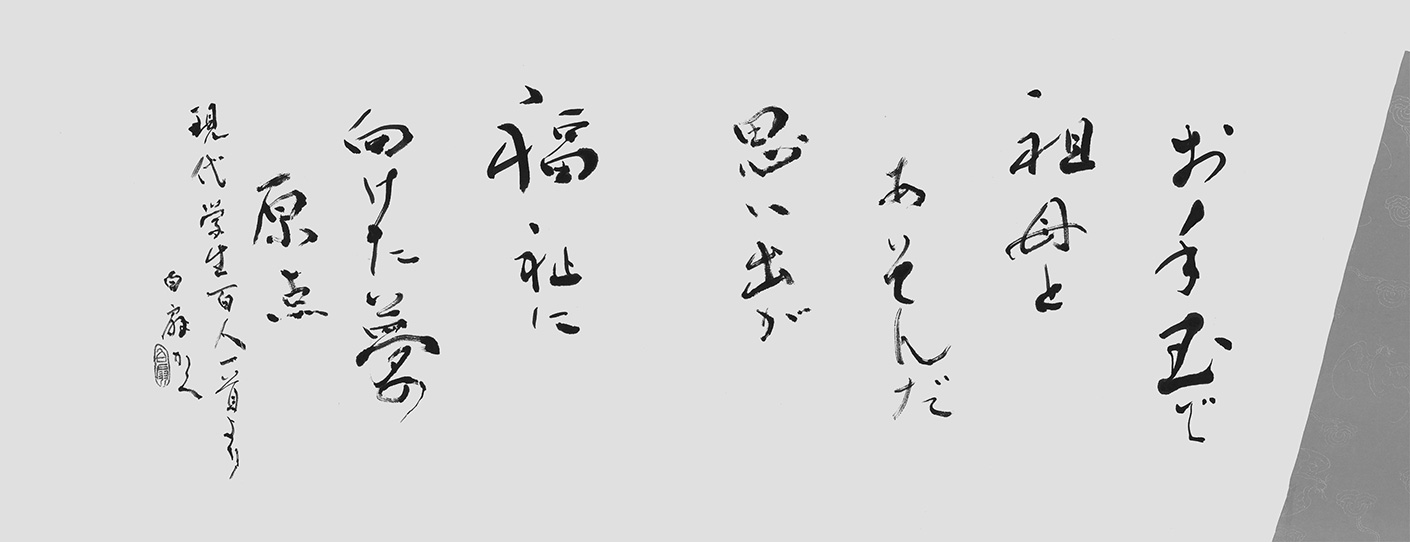 お手玉で
祖母と
あそんだ
思い出が
福祉に
向けた夢の
原点
現代学生百人一首より
白扇かく